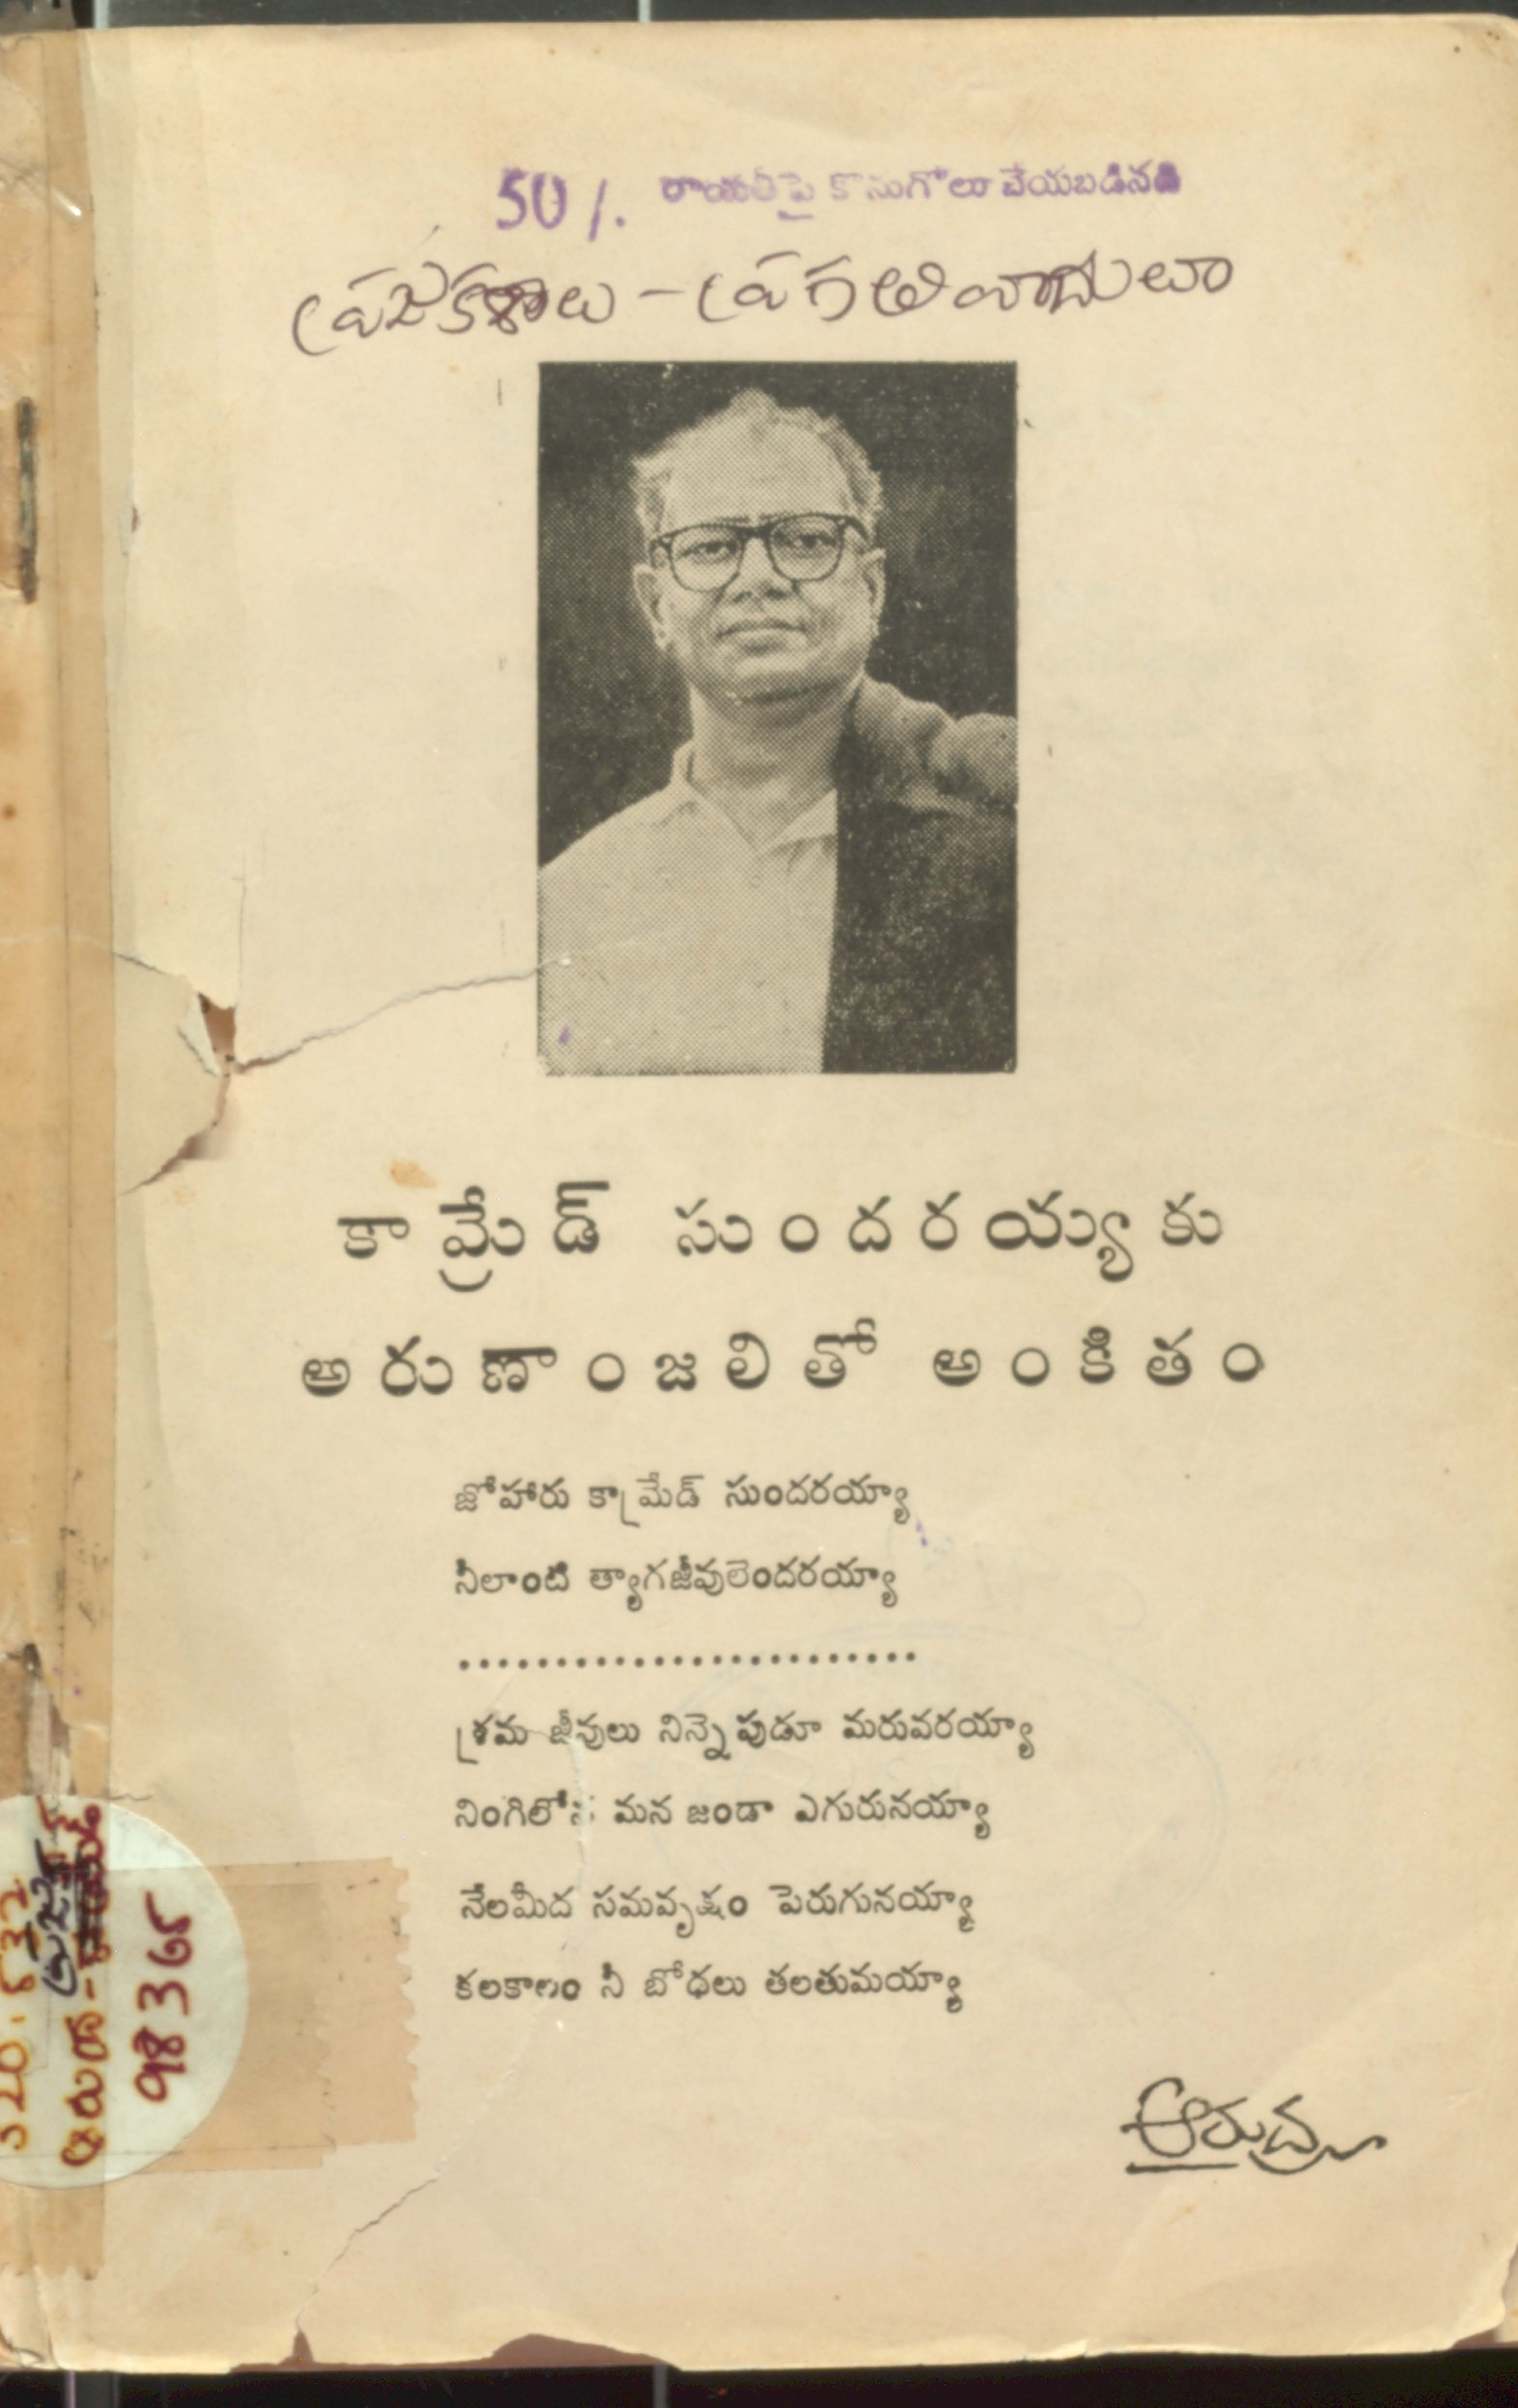 50 /. రాయితీపై కొనుగోలు చేయబడినది
ప్రజాకళాలు - ప్రగతివాదులూ
కామ్రేడ్ సుందరయ్యకు
అరుణాంజలితో అంకితం
జోహారు కామ్రేడ్ సుందరయ్యా
నీలాంటి త్యాగజీవులెందరయ్యా
........................
శ్రమ జీవులు నిన్నెపుడూ మరువరయ్యా
నింగిలోన మన జండా ఎగురునయ్యా
నేలమీద సమవృక్షం పెరుగునయ్యా
కలకాలం నీ బోధలు తలతుమయ్యా
ఆరుద్ర
98365